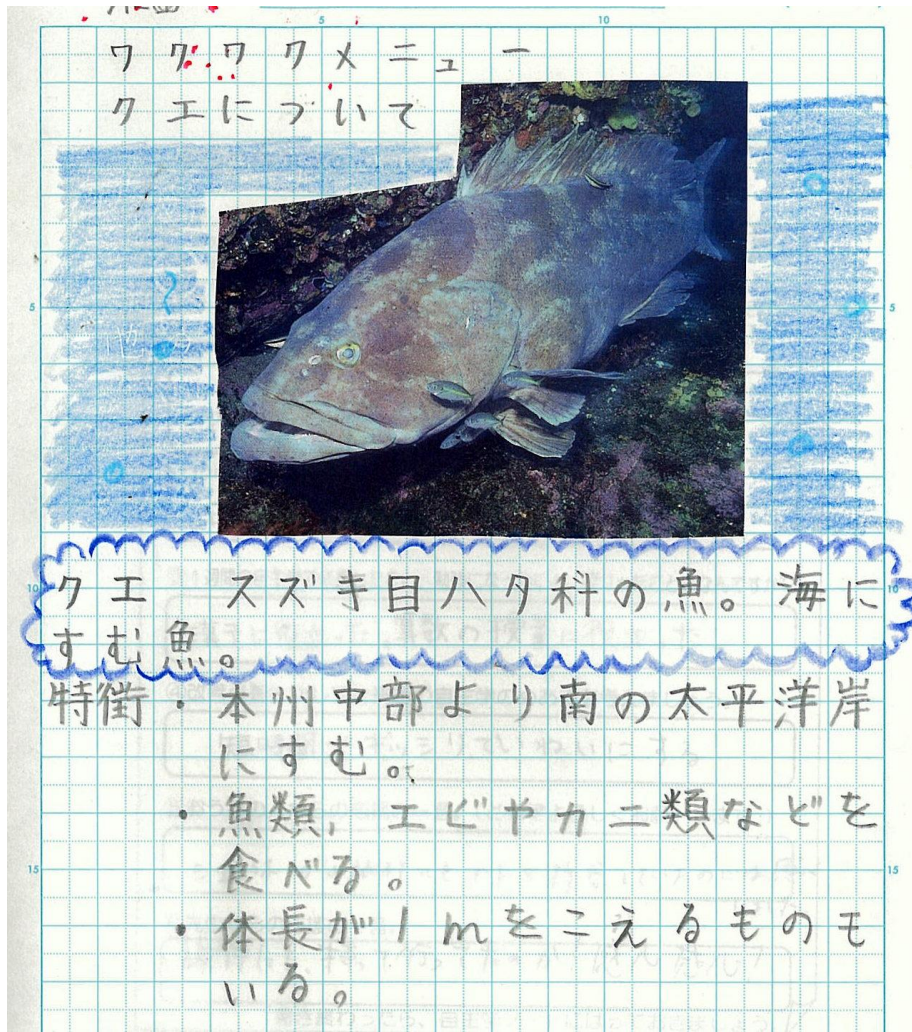 5 10
ワクワクメニュー
クエについて
5 5
10 クエ　スズキ目ハタ科の魚。海に 10
すむ魚。
特徴・本州中部より南の太平洋岸
にすむ。
・魚類，エビやカニ類などを
15 食べる。 15
・体長が1mをこえるものも
いる。